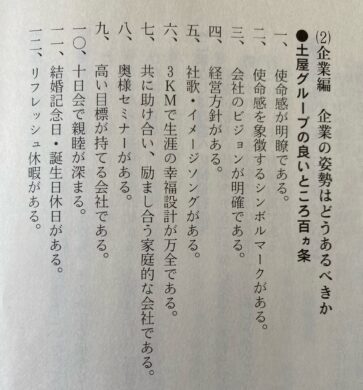 (2)企業編　企業の姿勢はどうあるべきか
●土屋グループの良いところ百ヵ条
一、使命感が明瞭である。
二、使命感を象徴するシンボルマークがある。
三、会社のビジョンが明確である。
四、経営方針がある。
五、社歌・イメージソングがある。
六、3KMで生涯の幸福設計が万全である。
七、共に助け合い、励まし合う家庭的な会社である。
八、奥様セミナーがある。
九、高い目標が持てる会社である。
一〇、十日会で親睦が深まる。
一一、結婚記念日・誕生日休日がある。
一二、リフレッシュ休暇がある。